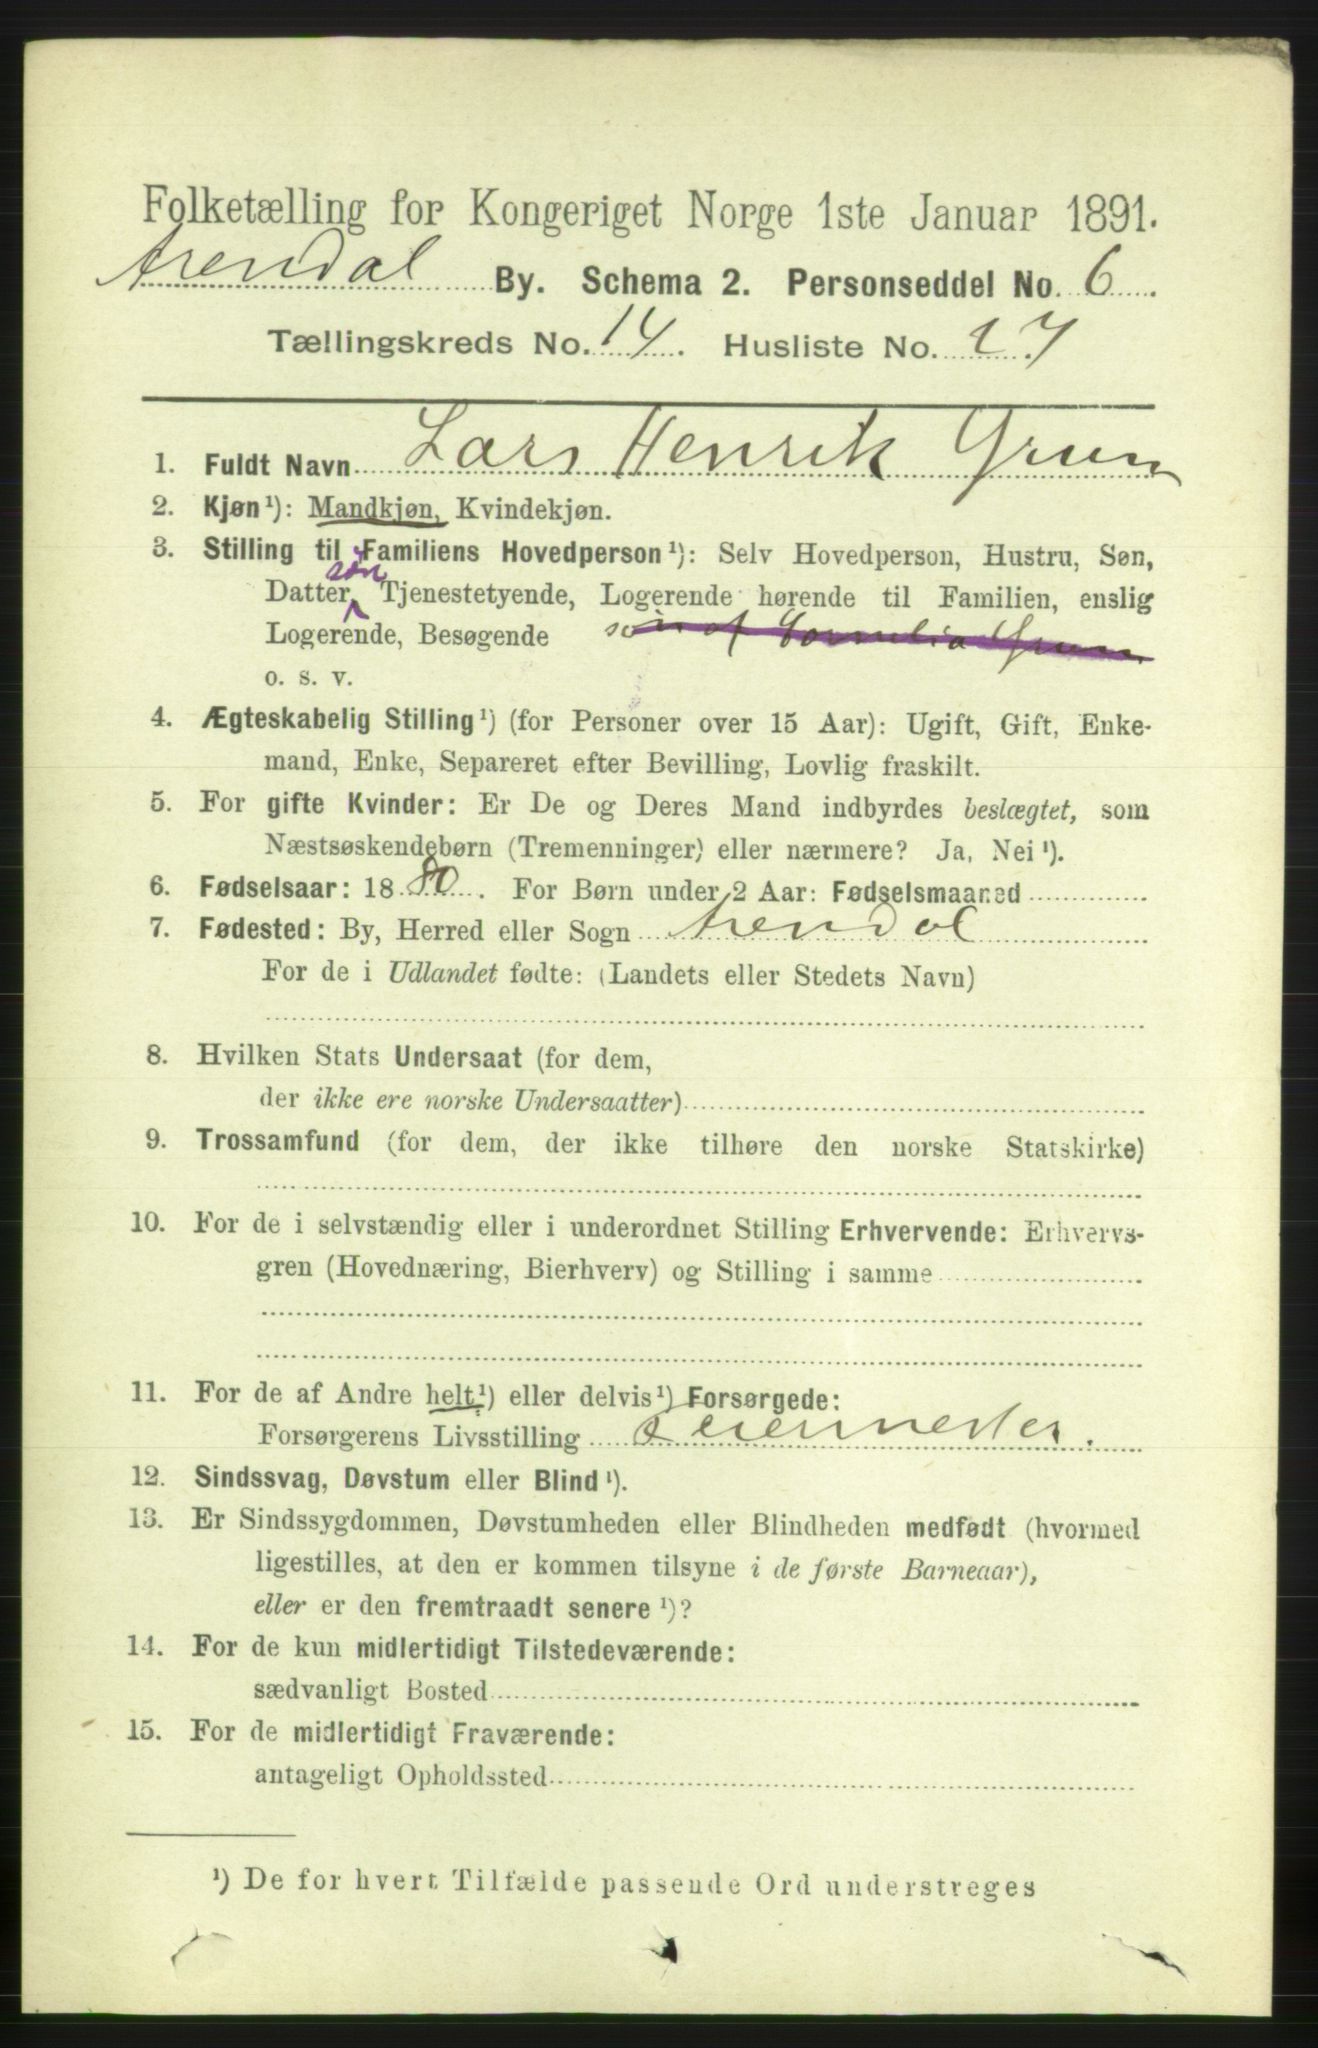 Folketælling for Kongeriget Norge 1ste Januar 1891.
Arendal By. Schema 2. Personseddel No. 6
Tællingskreds No. 14. Husliste No. 27
1. Fuldt Navn Lars Henrik Grum
2. Kjøn¹): Mandkjøn, Kvindekjøn.
3. Stilling til Familiens Hovedperson¹): Selv Hovedperson, Hustru, Søn,
søn
Datter, Tjenestetyende, Logerende hørende til Familien, enslig
Logerende, Besøgende søn af Cornelia Grum
o. s. v.
4. Ægteskabelig Stilling¹) (for Personer over 15 Aar): Ugift, Gift, Enke-
mand, Enke, Separeret efter Bevilling, Lovlig fraskilt.
5. For gifte Kvinder: Er De og Deres Mand indbyrdes beslægtet, som
Næstsøskendebørn (Tremenninger) eller nærmere? Ja, Nei¹).
6. Fødselsaar: 1880. For Børn under 2 Aar: Fødselsmaaned
7. Fødested: By, Herred eller Sogn Arendal
For de i Udlandet fødte: (Landets eller Stedets Navn)
8. Hvilken Stats Undersaat (for dem,
der ikke ere norske Undersaatter)
9. Trossamfund (for dem, der ikke tilhøre den norske Statskirke)
10. For de i selvstændig eller i underordnet Stilling Erhvervende: Erhvervs-
gren (Hovednæring, Bierhverv) og Stilling i samme
11. For de af Andre helt¹) eller delvis¹) Forsørgede:
Forsørgerens Livsstilling
12. Sindssvag, Døvstum eller Blind¹).
13. Er Sindssygdommen, Døvstumheden eller Blindheden medfødt (hvormed
ligestilles, at den er kommen tilsyne i de første Barneaar),
eller er den fremtraadt senere¹)?
14. For de kun midlertidigt Tilstedeværende:
sædvanligt Bosted
15. For de midlertidigt Fraværende:
antageligt Opholdssted
¹) De for hvert Tilfælde passende Ord understreges